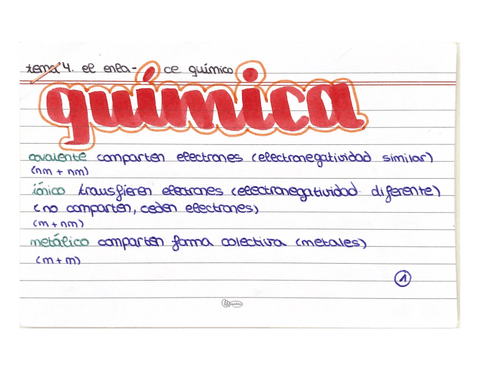 tema 4. el enla- ce químico
química
covalente comparten electrones (electronegatividad similar)
(nm + nm)
iónico transfieren electrones (electronegatividad diferente)
(no comparten, ceden electrones)
(m + nm)
metálico comparten forma colectiva (metales)
(m + m)
1